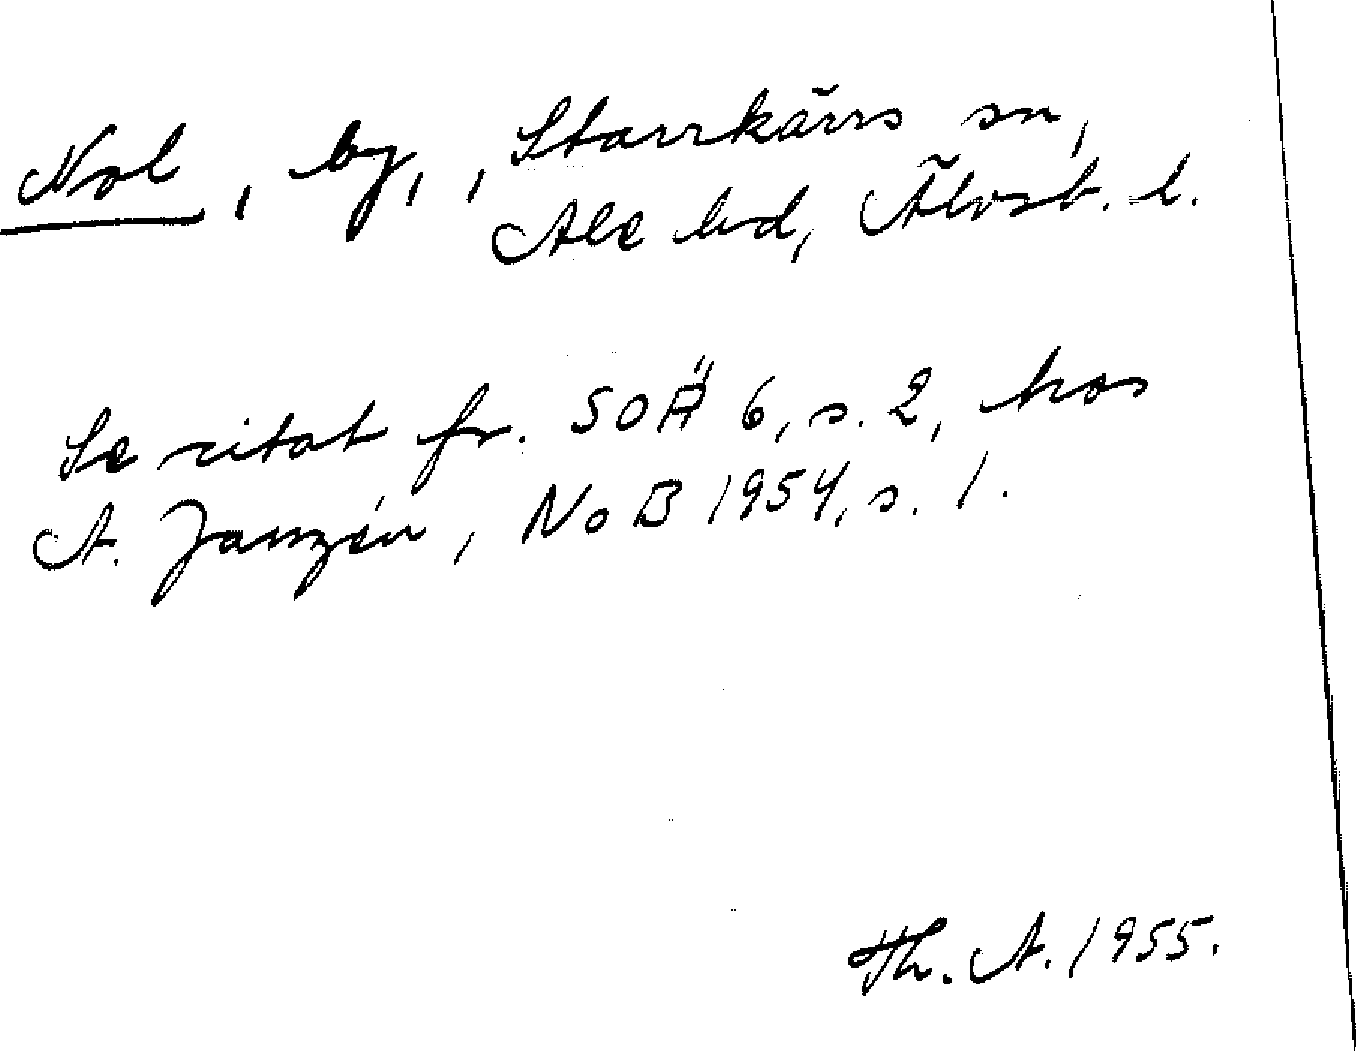 Nol, by, , Starrkärrs sn,
Ale hd, Älvsb. l.
Se citat fr. SOÄ 6, s. 2, hos
A. Janzén, NoB 1954, s. 1.
Th. A. 1955.